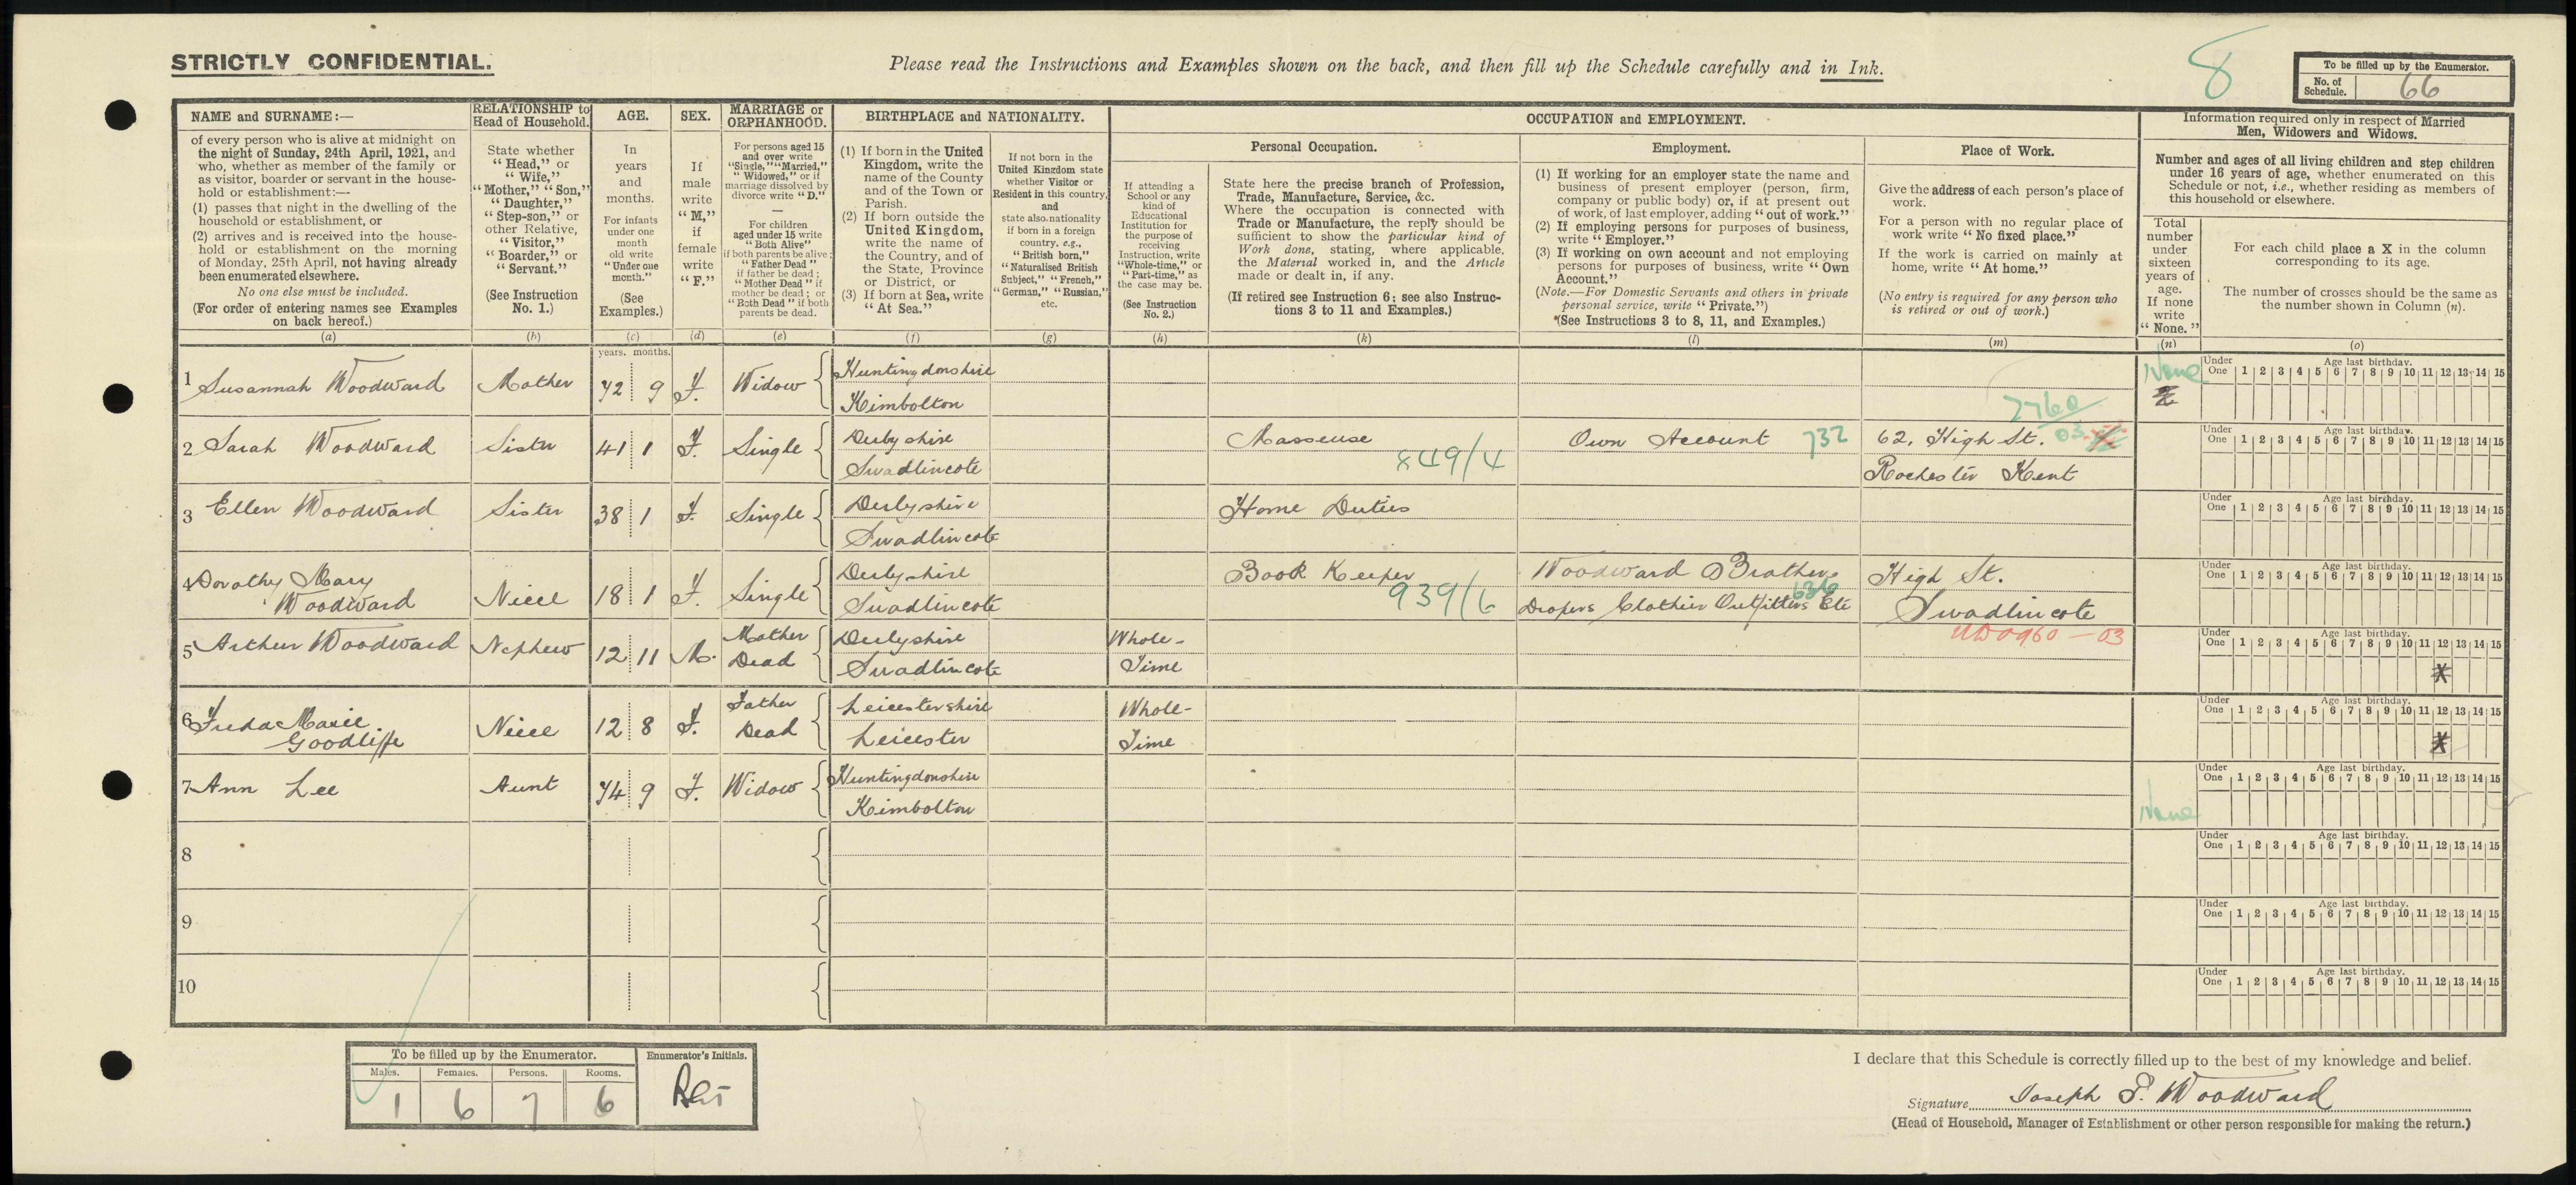 STRICTLY CONFIDENTIAL.
Please read the Instructions and Examples shown on the back, and then fill up the Schedule carefully and in Ink.
8
To be filled up by the Enumerator.
No. of Schedule. 66
NAME and SURNAME:—
of every person who is alive at midnight on
the night of Sunday, 24th April, 1921, and
who, whether as member of the family or
as visitor, boarder or servant in the house-
hold or establishment:—
(1) passes that night in the dwelling of the
household or establishment, or
(2) arrives and is received into the house-
hold or establishment on the morning
of Monday, 25th April, not having already
been enumerated elsewhere.
No one else must be included.
(For order of entering names see Examples
on back hereof.)
(a)
RELATIONSHIP to
Head of Household.
State whether
"Head," or
"Wife,"
"Mother," "Son,"
"Daughter,"
"Step-son," or
other Relative,
"Visitor,"
"Boarder," or
"Servant."
(See Instruction
No. 1.)
(b)
AGE.
In
years
and
months.
For infants
under one
month
old write
"Under one
month."
(See
Examples.)
(c)
SEX.
If
male
write
"M,"
if
female
write
"F."
(d)
MARRIAGE or
ORPHANHOOD.
For persons aged 15
and over write
"Single," "Married,"
"Widowed," or if
marriage dissolved by
divorce write "D."
—
For children
aged under 15 write
"Both Alive"
if both parents be alive;
"Father Dead"
if father be dead;
"Mother Dead" if
mother be dead; or
"Both Dead" if both
parents be dead.
(e)
BIRTHPLACE and NATIONALITY.
(1) If born in the United
Kingdom, write the
name of the County
and of the Town or
Parish.
(2) If born outside the
United Kingdom,
write the name of
the Country, and of
the State, Province
or District, or
(3) If born at Sea, write
"At Sea."
(f)
If not born in the
United Kingdom state
whether Visitor or
Resident in this country,
and
state also nationality
if born in a foreign
country, e.g.,
"British born,"
"Naturalised British
Subject," "French,"
"German," "Russian,"
etc.
(g)
OCCUPATION and EMPLOYMENT.
If attending a
School or any
kind of
Educational
Institution for
the purpose of
receiving
Instruction, write
"Whole-time," or
"Part-time," as
the case may be.
(See Instruction
No. 2.)
(h)
Personal Occupation.
State here the precise branch of Profession,
Trade, Manufacture, Service, &c.
Where the occupation is connected with
Trade or Manufacture, the reply should be
sufficient to show the particular kind of
Work done, stating, where applicable,
the Material worked in, and the Article
made or dealt in, if any.
(If retired see Instruction 6; see also Instruc-
tions 3 to 11 and Examples.)
(k)
Employment.
(1) If working for an employer state the name and
business of present employer (person, firm,
company or public body) or, if at present out
of work, of last employer, adding "out of work."
(2) If employing persons for purposes of business,
write "Employer."
(3) If working on own account and not employing
persons for purposes of business, write "Own
Account."
(Note.—For Domestic Servants and others in private
personal service, write "Private.")
(See Instructions 3 to 8, 11, and Examples.)
(l)
Place of Work.
Give the address of each person's place of
work.
For a person with no regular place of
work write "No fixed place."
If the work is carried on mainly at
home, write "At home."
(No entry is required for any person who
is retired or out of work.)
(m)
Information required only in respect of Married
Men, Widowers and Widows.
Number and ages of all living children and step children
under 16 years of age, whether enumerated on this
Schedule or not, i.e., whether residing as members of
this household or elsewhere.
Total
number
under
sixteen
years of
age.
If none
write
"None."
(n)
For each child place a X in the column
corresponding to its age.
The number of crosses should be the same as
the number shown in Column (n).
(o)
years. months.
1 Susannah Woodward Mother 72 9 F. Widow Huntingdonshire
Kimbolton
None
Under One Age last birthday.
1 2 3 4 5 6 7 8 9 10 11 12 13 14 15
2 Sarah Woodward Sister 41 1 F. Single Derbyshire
Swadlincote
Masseuse 849/4
Own Account 732
7760 03
62, High St.
Rochester Kent
Under One Age last birthday.
1 2 3 4 5 6 7 8 9 10 11 12 13 14 15
3 Ellen Woodward Sister 38 1 F. Single Derbyshire
Swadlincote
Home Duties
Under One Age last birthday.
1 2 3 4 5 6 7 8 9 10 11 12 13 14 15
4 Dorothy Mary
Woodward Niece 18 1 F. Single Derbyshire
Swadlincote
Book Keeper 939/6
Woodward Brothers
Drapers Clothier Outfitters Etc
High St.
Swadlincote
UD0960-03
Under One Age last birthday.
1 2 3 4 5 6 7 8 9 10 11 12 13 14 15
5 Arthur Woodward Nephew 12 11 M. Mother
Dead
Derbyshire
Swadlincote
Whole-
Time
Under One Age last birthday.
1 2 3 4 5 6 7 8 9 10 11 12 13 14 15
6 Freda Marie
Goodliffe Niece 12 8 F. Father
Dead
Leicestershire
Leicester
Whole-
Time
Under One Age last birthday.
1 2 3 4 5 6 7 8 9 10 11 12 13 14 15
7 Ann Lee Aunt 74 9 F. Widow Huntingdonshire
Kimbolton
None
Under One Age last birthday.
1 2 3 4 5 6 7 8 9 10 11 12 13 14 15
8
Under One Age last birthday.
1 2 3 4 5 6 7 8 9 10 11 12 13 14 15
9
Under One Age last birthday.
1 2 3 4 5 6 7 8 9 10 11 12 13 14 15
10
Under One Age last birthday.
1 2 3 4 5 6 7 8 9 10 11 12 13 14 15
To be filled up by the Enumerator.
Males. Females. Persons. Rooms.
1 6 7 6
Enumerator's Initials.
I declare that this Schedule is correctly filled up to the best of my knowledge and belief.
Signature Joseph P. Woodward
(Head of Household, Manager of Establishment or other person responsible for making the return.)